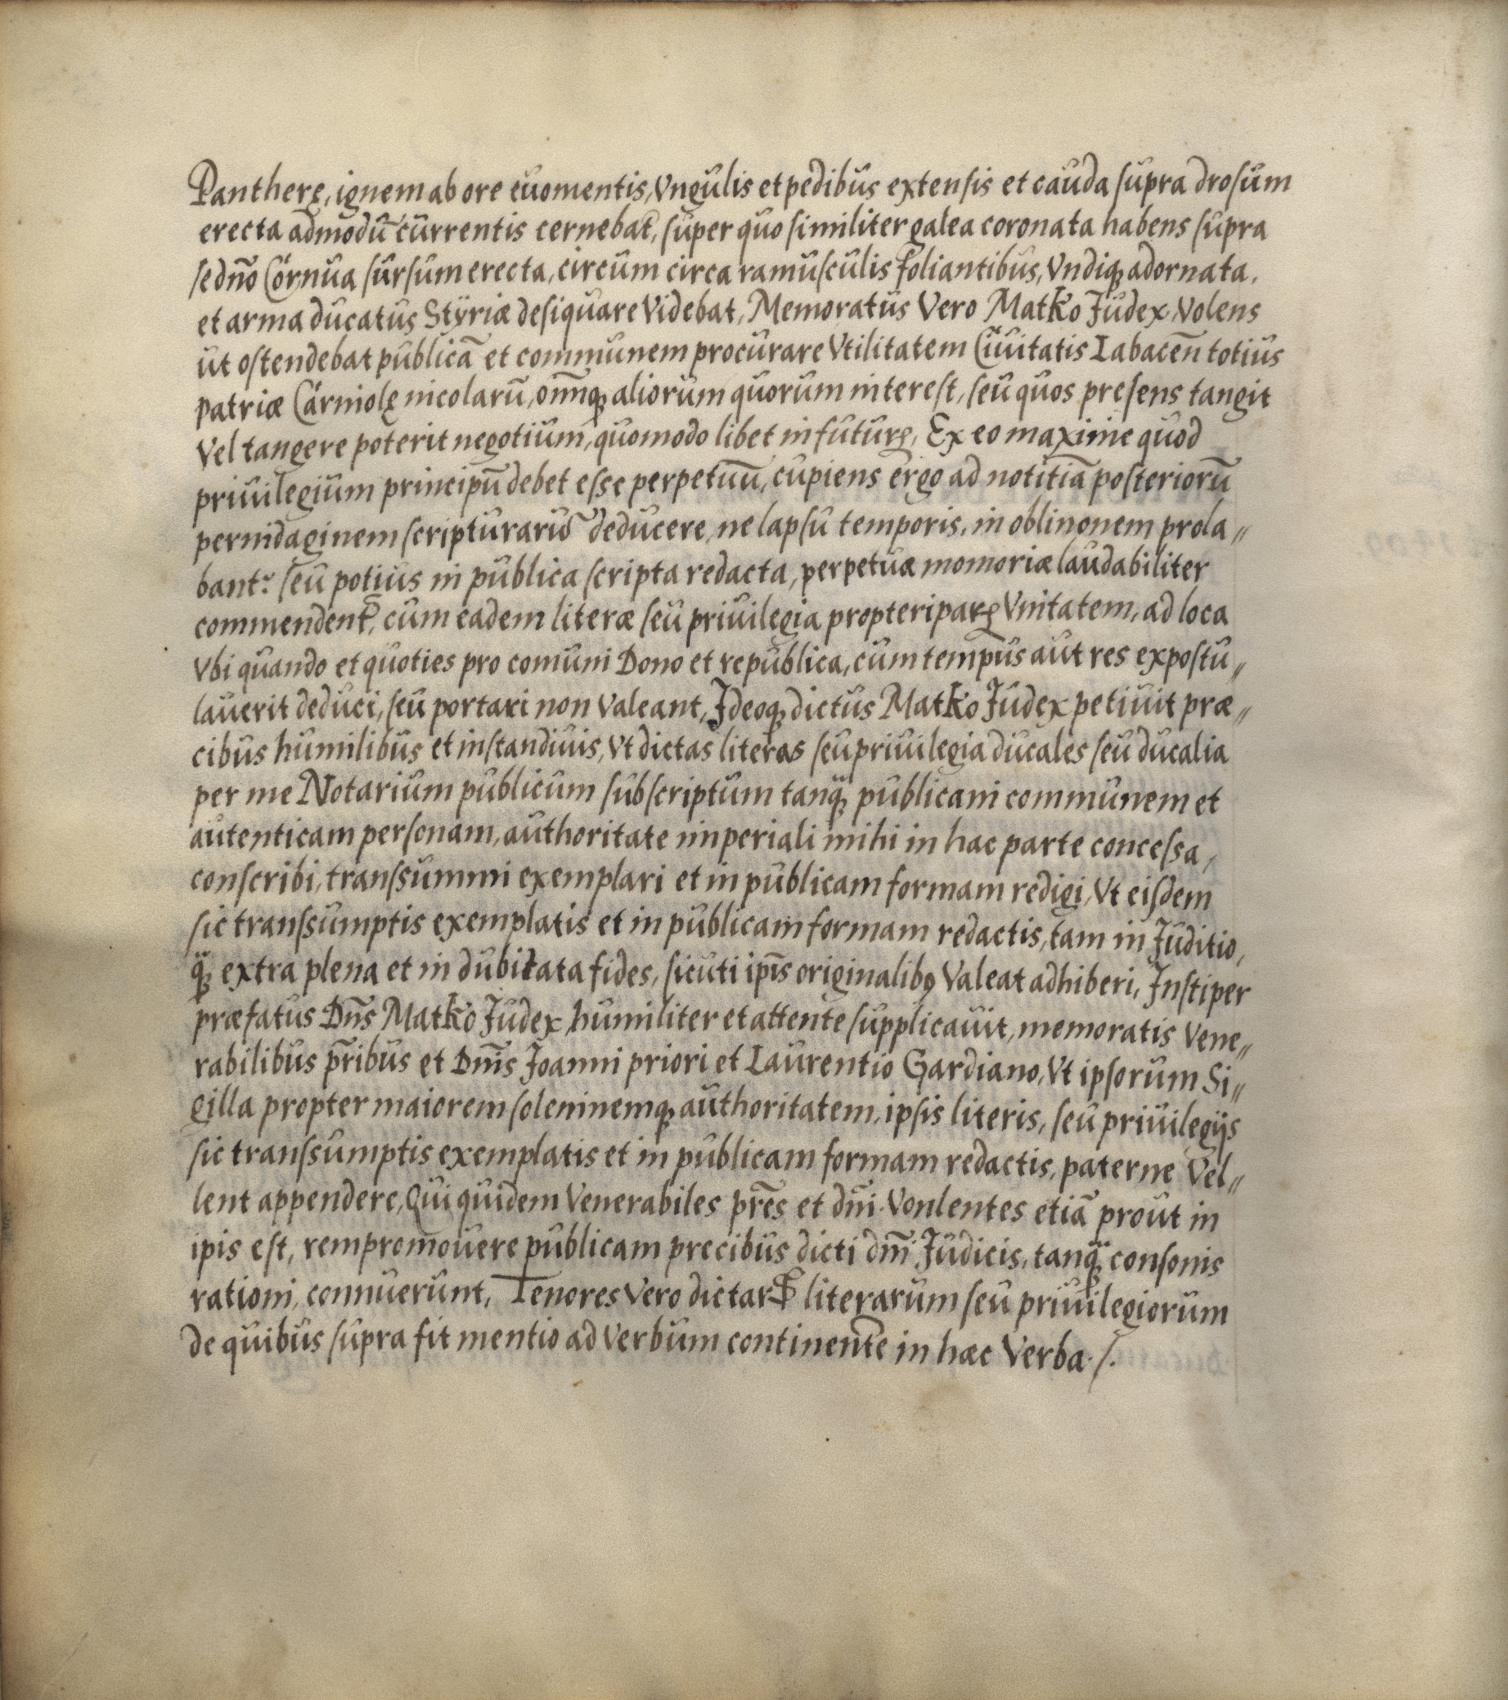 Pantherę, ignem ab ore euomentis, Vngulis et pedibus extensis et cauda supra drosum
erecta admodũ currentis cernebat̃, super quo similiter galea coronata habens supra
se dño Cornua sursum erecta, circum circa ramusculis foliantibus, Vndiq; adornata,
et arma ducatus Styriæ desiquare Videbat, Memoratus Vero Matko Judex, Volens
ut ostendebat publicã et communem procurare Vtilitatem Ciuitatis Labaceñ totius
patriæ Carniolę nicolarũ, om̃nq; aliorum quorum interest, seu quos presens tangit
Vel tangere poterit negotium, quomodo libet in futurę, Ex eo maxime quod
priuilegium principũ debet esse perpetuũ, cupiens ergo ad notitiã posteriorũ
pernidaginem scripturariũ deducere, ne lapsu temporis, in oblinonem prola„
bant.r seu potius in publica scripta redacta, perpetuæ momoriæ laudabiliter
commendent̃, cum eadem literæ seu priuilegia propter iparę Vnitatem, ad loca
Vbi quando et quoties pro comuni Dono et republica, cum temp̃us aut res expostu„
lauerit deduci, seu portari non Valeant, Ideoq; dictus Matko Judex petiuit præ„
cibus humilibus et instandiuis, Vt dictas literas seu priuilegia ducales seu ducalia
per me Notarium publicum subscriptum tanq̃; publicam communem et
autenticam personam, authoritate imperiali mihi in hac parte concessa,
conscribi, transsummi exemplari et in publicam formam redigi, Vt eisdem
sic transsumptis exemplatis et in publicam formam redactis, tam in Juditio,
q̃; extra plena et in dubitata fides, sicuti ip̃is originalibꝫ Valeat adhiberi, Instiper
præfatus Dñs Matko Judex, humiliter et attente supplicauit, memoratis Vene„
rabilibus p̃ribus et Dñis Joanni priori et Laurentio Gardiano, Vt ipsorum Si„
gilla propter maiorem soleninemq; authoritatem, ipsis literis, seu priuilegijs
sic transsumptis exemplatis et in publicam formam redactis, paterne Vel„
lent appendere, Qui quidem Venerabiles p̃res et dñi Vonlentes etiã prout in
ipis est, rem promouere publicam precibus dicti dñi Judicis, tanq̃; consonis
rationi, connuerunt, Tenores Vero dictarꝝ literarum seu priuilegiorum
de quibus supra fit mentio ad Verbum continente in hæc Verba ./.